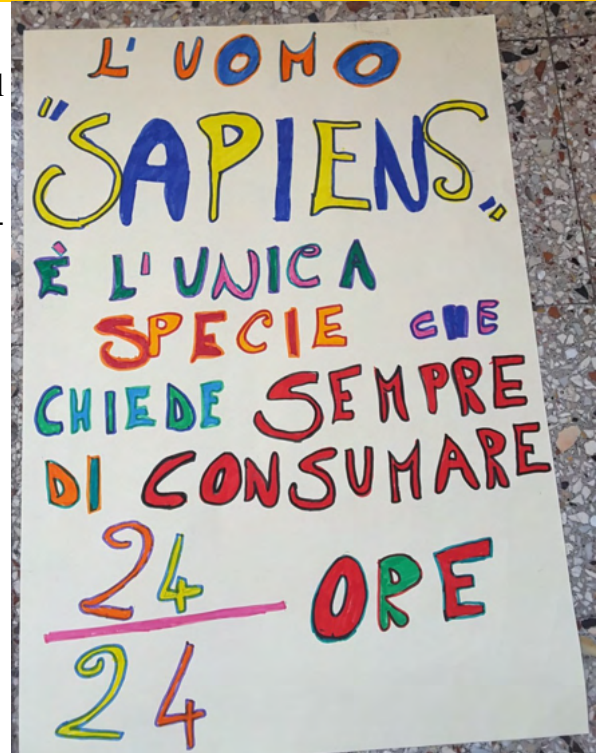 L' UOMO
"SAPIENS„
È L' UNICA
SPECIE CHE
CHIEDE SEMPRE
DI CONSUMARE
24 ORE
24